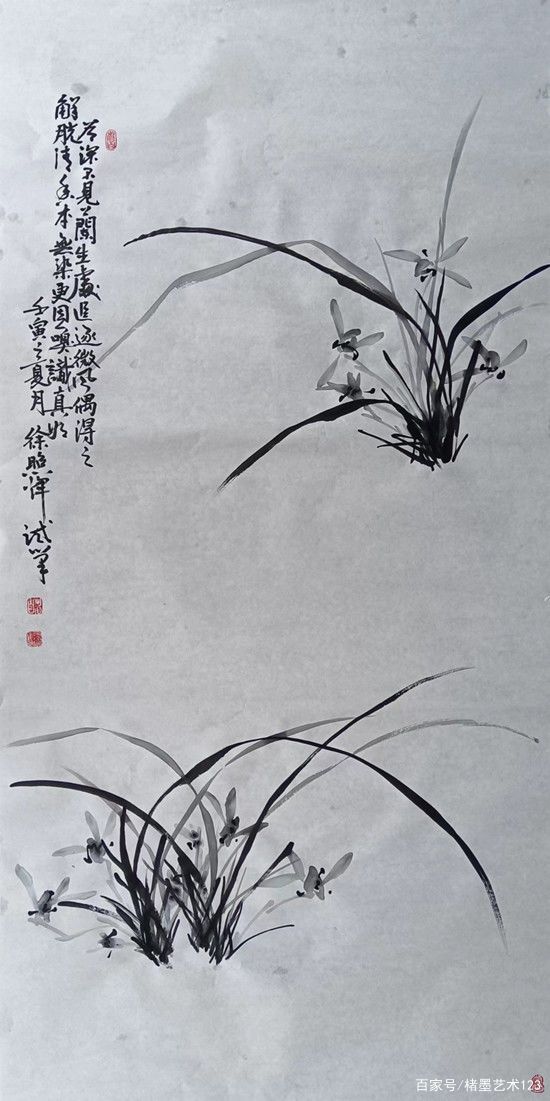 谷深不見蘭生處追逐微風偶得之
解脫清香本無染更因嗅識真如
壬寅之夏月
徐照渾試筆
百家号/楮墨艺术123